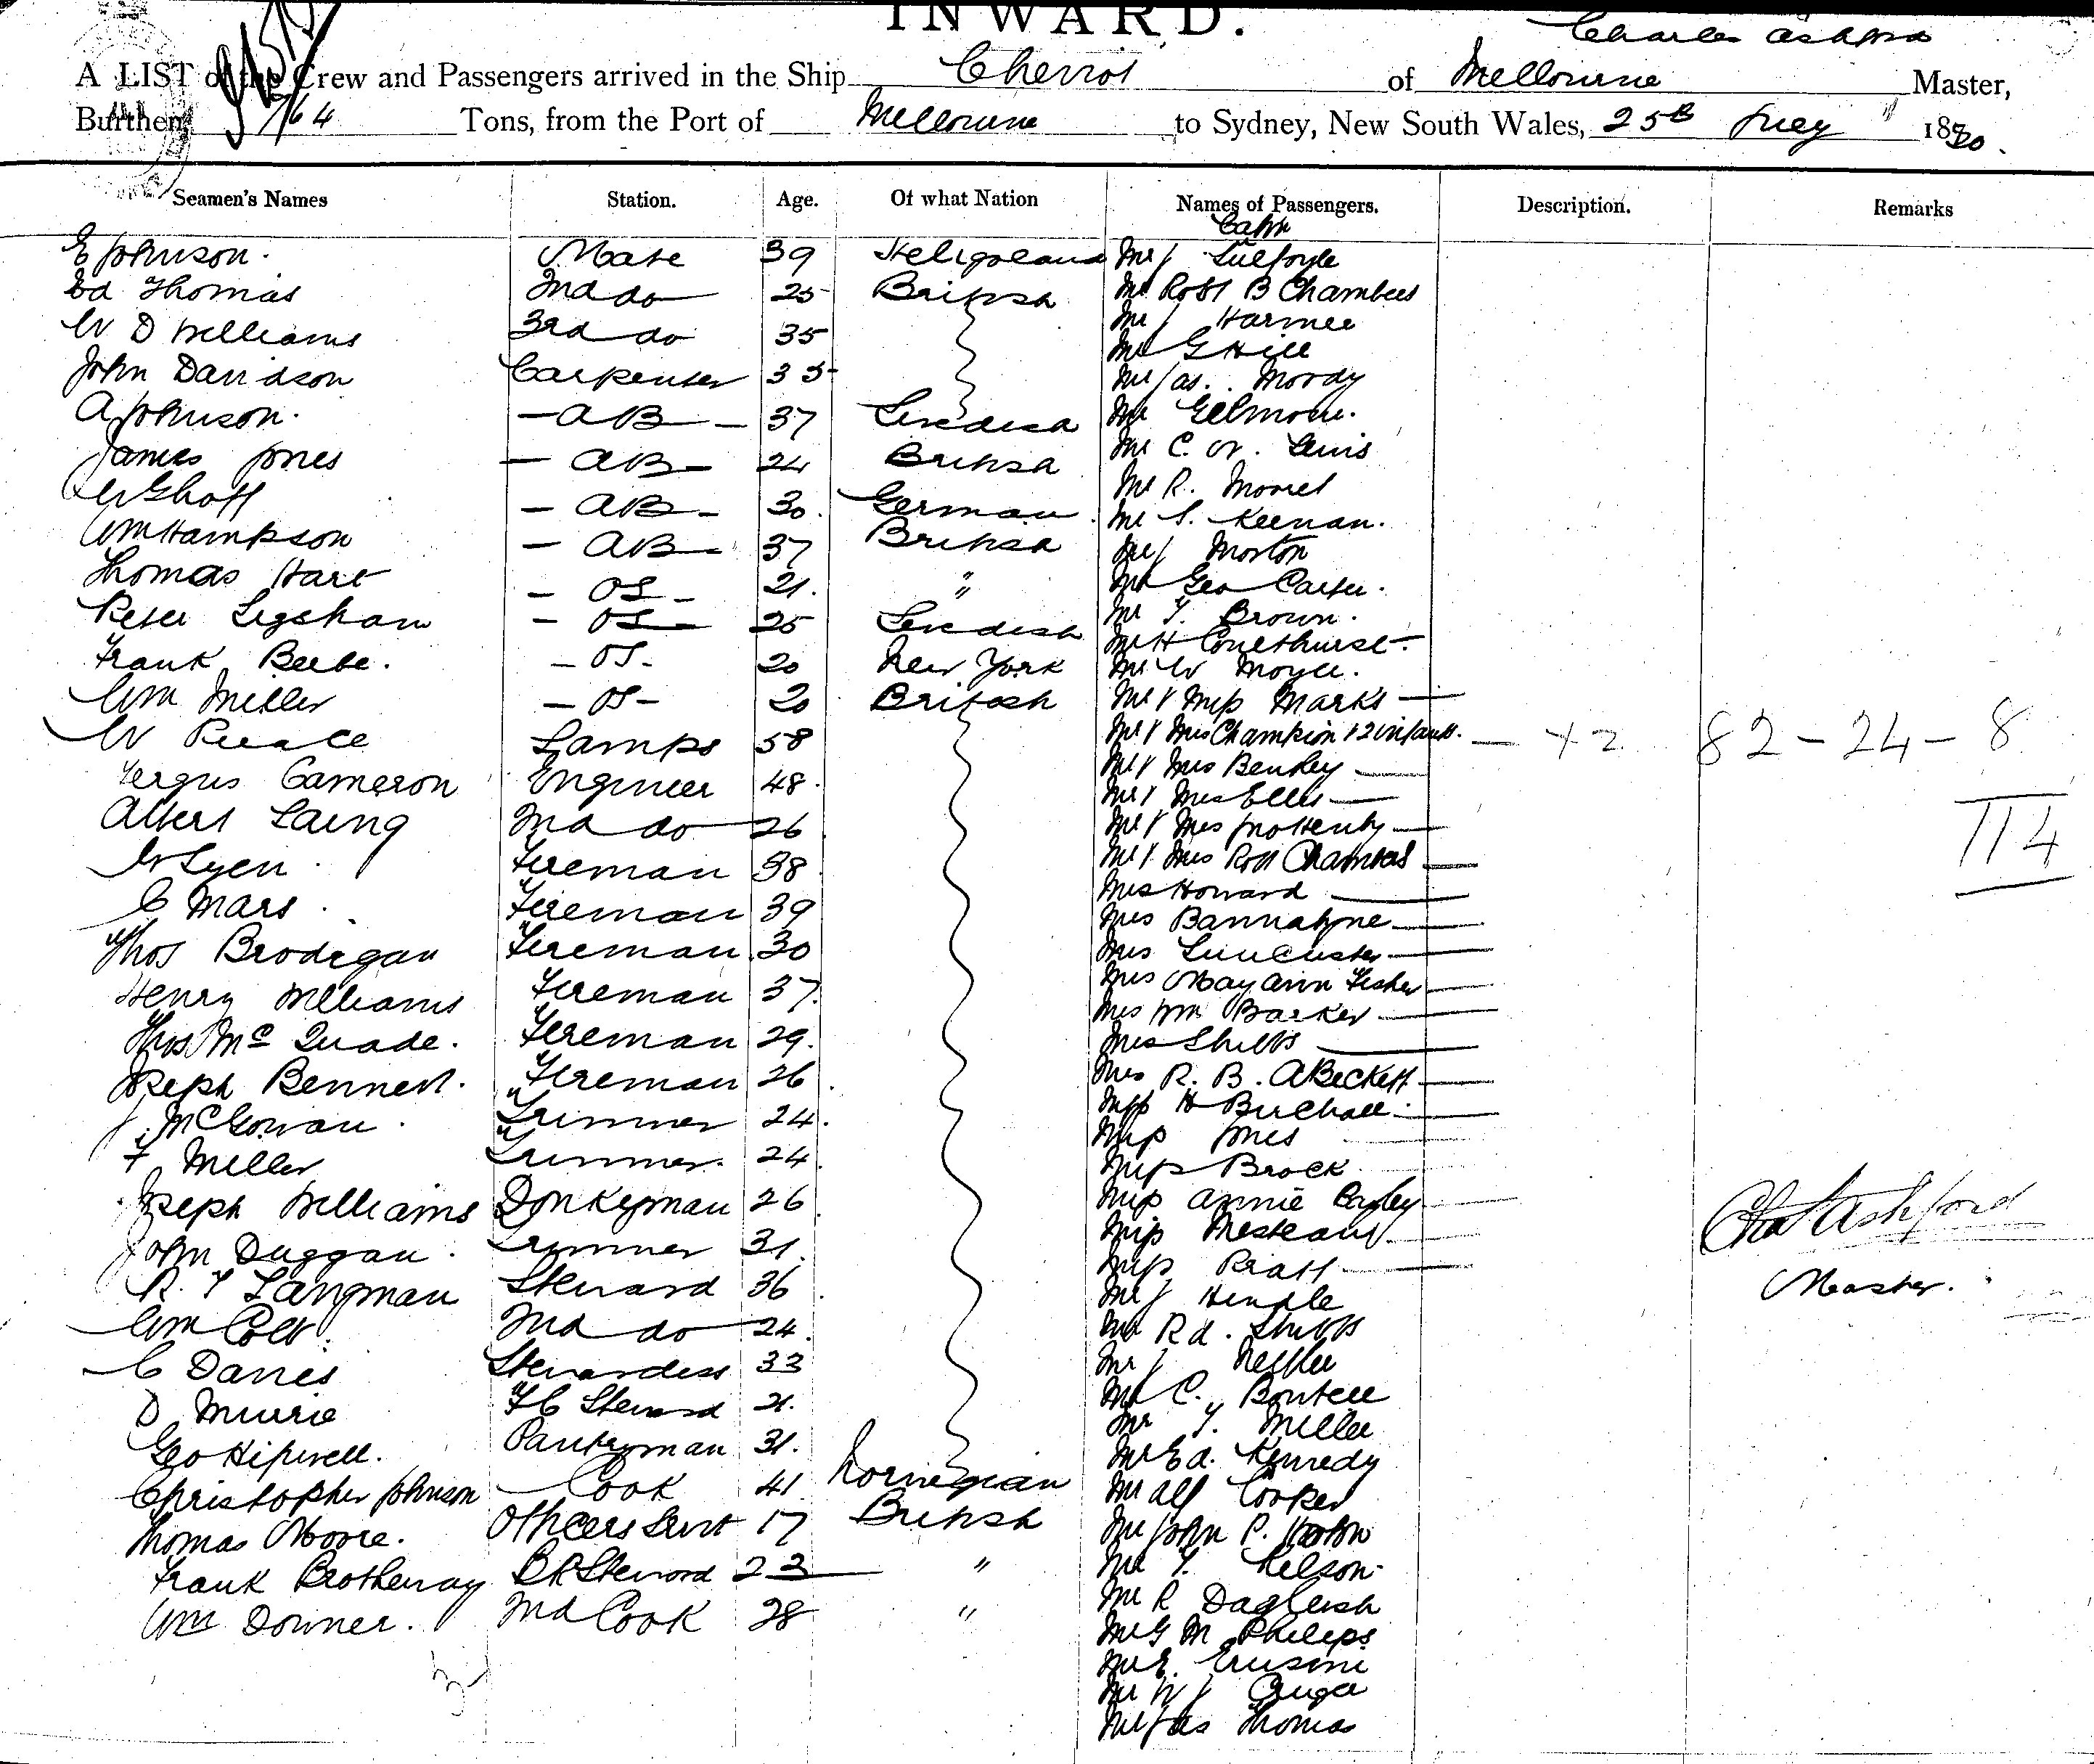 INWARD.
Charles Ashford
A LIST of the Crew and Passengers arrived in the Ship Cheviot of Melbourne Master,
Burthen 764 Tons, from the Port of Melbourne to Sydney, New South Wales, 25th July 1880.
Seamen's Names Station. Age. Of what Nation Names of Passengers. Description. Remarks
Cabin
E Johnson. Mate 39 Heligoland Mr J
Ed Thomas 2nd do 25 British Mr Robt B Chambers
W D Williams 3rd do 35 Mr J Harmer
Mr G Hill
John Davidson Carpenter 35 Mr Jas. Moody
A Johnson. - AB - 37 Swedish Mr Gilmour.
James Jones - AB - 24 British Mr C. W. Lewis
- AB - 30. German Mr R. Morrel
Mr S. Keenan.
Wm Hampson - AB - 37 British Mr J Morton
Thomas Hart - OS - 21. " Mr Geo Carter.
Peter - OS - 25 Swedish Mr T. Brown.
Mr H Coulthurst.
Frank Beebe. - OS - 20 New York Mr W Moyle.
Wm Miller - OS - 20 British Mr & Miss Marks
W Pearce Lamps 58 Mr & Mrs Champion & 2 infants. - + 2 82 - 24 - 8
Fergus Cameron Engineer 48. Mr & Mrs Bensley
Mr & Mrs Ellis 114
Albert Laing 2nd do 26 Mr & Mrs Jno Henty
W Lyen. Fireman 38 Mr & Mrs Robt Chambers
C Mars. Fireman 39 Mrs Howard
Mrs Bannatyne
Thos Brodigan Fireman 30 Mrs
Mrs May Ann Fisher
Henry Williams Fireman 37. Mrs Wm Barker
Thos McQuade. Fireman 29. Mrs Stubbs
Joseph Bennett. Fireman 26 Mrs R. B. A'Beckett
J. McGowan. Trimmer 24. Miss H Birchall
F Miller Trimmer. 24. Miss Jones
Miss Brock
Joseph Williams Donkeyman 26 Miss Annie
John Duggan. Trimmer 31. Miss
Miss Pratt
R. T Langman Steward 36 Mr J Hindle
Wm 2nd do 24. Mr Rd. Stubbs
C Davies Stewardess 33 Mr J
Mr C. Boutell
D Murrie FC Steward 21. Mr T. Miller
Geo Hipwell. Pantryman 31. Mr Ed. Kennedy
Christopher Johnson Cook 41 Norwegian Mr Alf Cooper
Thomas Moore. Officers Servt 17 British Mr John P.
Frank Brotheway BR Steward 23 " Mr T. Nelson
Mr R Dagleish
Wm Downer. 2nd Cook 28 " Mr G M Philips
Mr E.
Mr W J
Mr Jas Thomas
Chas Ashford
Master.